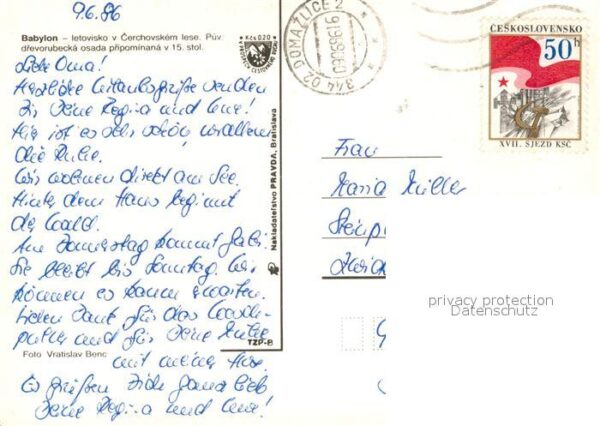 9.6.86
Babylon – letovisko v Čerchovském lese. Pův.
dřevorubecká osada připomínaná v 15. stol.
Kčs 0,20
Liebe Oma!
Herzliche Urlaubsgrüße senden
Dir Deine Regina und Uwe!
Hier ist es sehr schön, vor allem
die Ruhe.
Wir wohnen direkt am See.
Hinter dem Haus beginnt
der Wald.
Am Donnerstag kommt
Sie bleibt bis Sonntag. Wir
können es kaum erwarten.
Vielen Dank für das
und für Deine Mühe
Foto Vratislav Benc
mit meiner
Es grüßen Dich ganz lieb
Deine Regina und Uwe!
Nakladatelství PRAVDA, Bratislava
TZP-B
344 02 DOMAŽLICE 2
ČESKOSLOVENSKO
50h
XVII. SJEZD KSČ
Frau
Maria Müller
privacy protection
Datenschutz